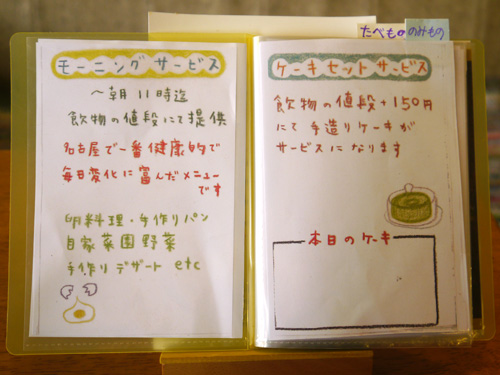 たべもの
のみもの
モーニングサービス
〜朝11時迄
飲物の値段にて提供
名古屋で一番健康的で
毎日変化に富んだメニュー
です
卵料理・手作りパン
自家菜園野菜
手作りデザート etc
ケーキセットサービス
飲物の値段+150円
にて手造りケーキが
サービスになります
本日のケーキ